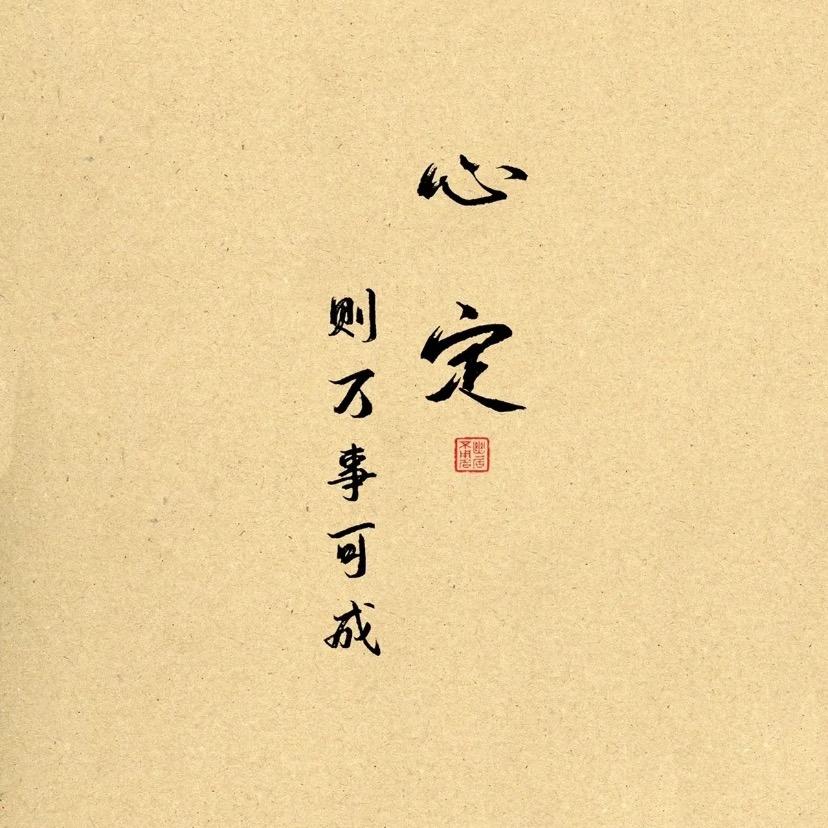 心定
则万事可成